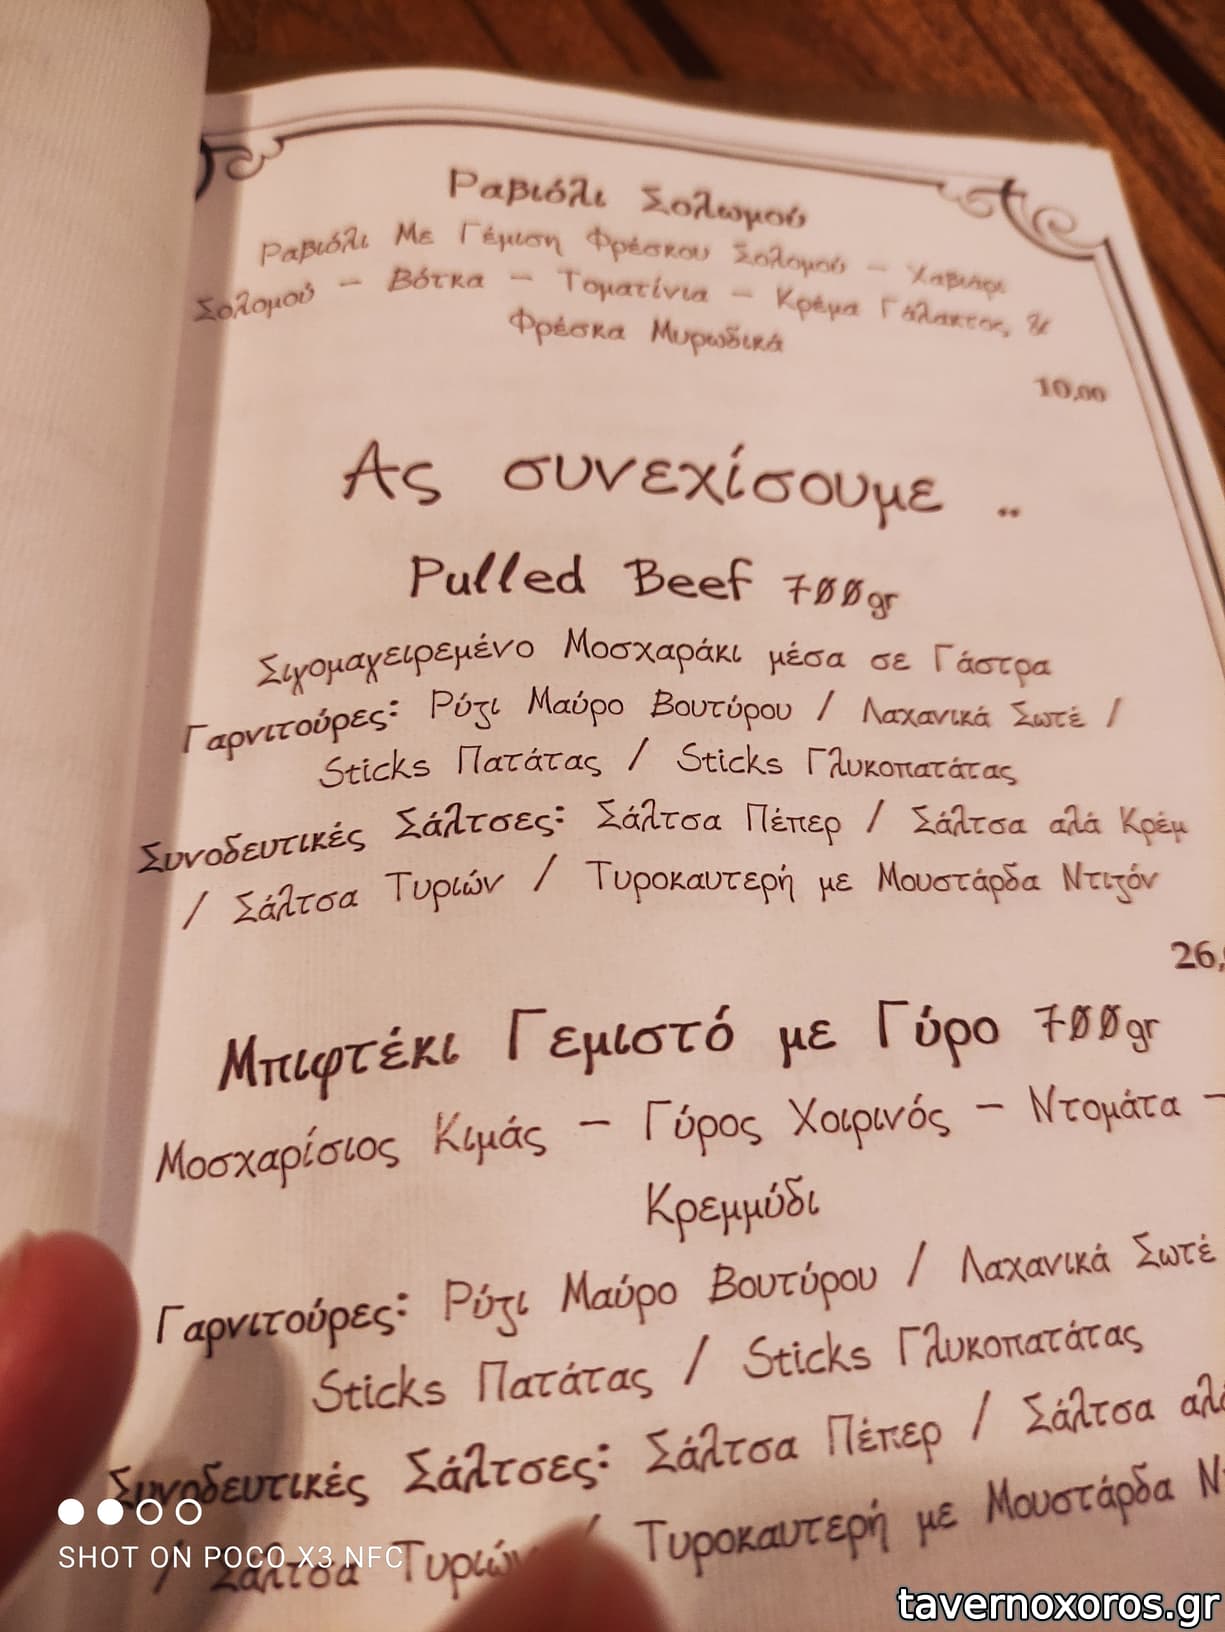 Ραβιόλι Σολωμού
Ραβιόλι Με Γέμιση Φρέσκου Σολομού – Χαβιάρι
Σολομού – Βότκα – Τοματίνια – Κρέμα Γάλακτος, &
Φρέσκα Μυρωδικά
10,00
Ας συνεχίσουμε ..
Pulled Beef 700gr
Σιγομαγειρεμένο Μοσχαράκι μέσα σε Γάστρα
Γαρνιτούρες: Ρύζι Μαύρο Βουτύρου / Λαχανικά Σωτέ /
Sticks Πατάτας / Sticks Γλυκοπατάτας
Συνοδευτικές Σάλτσες: Σάλτσα Πέπερ / Σάλτσα αλά Κρέμ
/ Σάλτσα Τυριών / Τυροκαυτερή με Μουστάρδα Ντιζόν
26,
Μπιφτέκι Γεμιστό με Γύρο 700gr
Μοσχαρίσιος Κιμάς – Γύρος Χοιρινός – Ντομάτα –
Κρεμμύδι
Γαρνιτούρες: Ρύζι Μαύρο Βουτύρου / Λαχανικά Σωτέ
Sticks Πατάτας / Sticks Γλυκοπατάτας
Συνοδευτικές Σάλτσες: Σάλτσα Πέπερ / Σάλτσα αλά
/ Σάλτσα Τυριών / Τυροκαυτερή με Μουστάρδα
SHOT ON POCO X3 NFC
tavernoxoros.gr